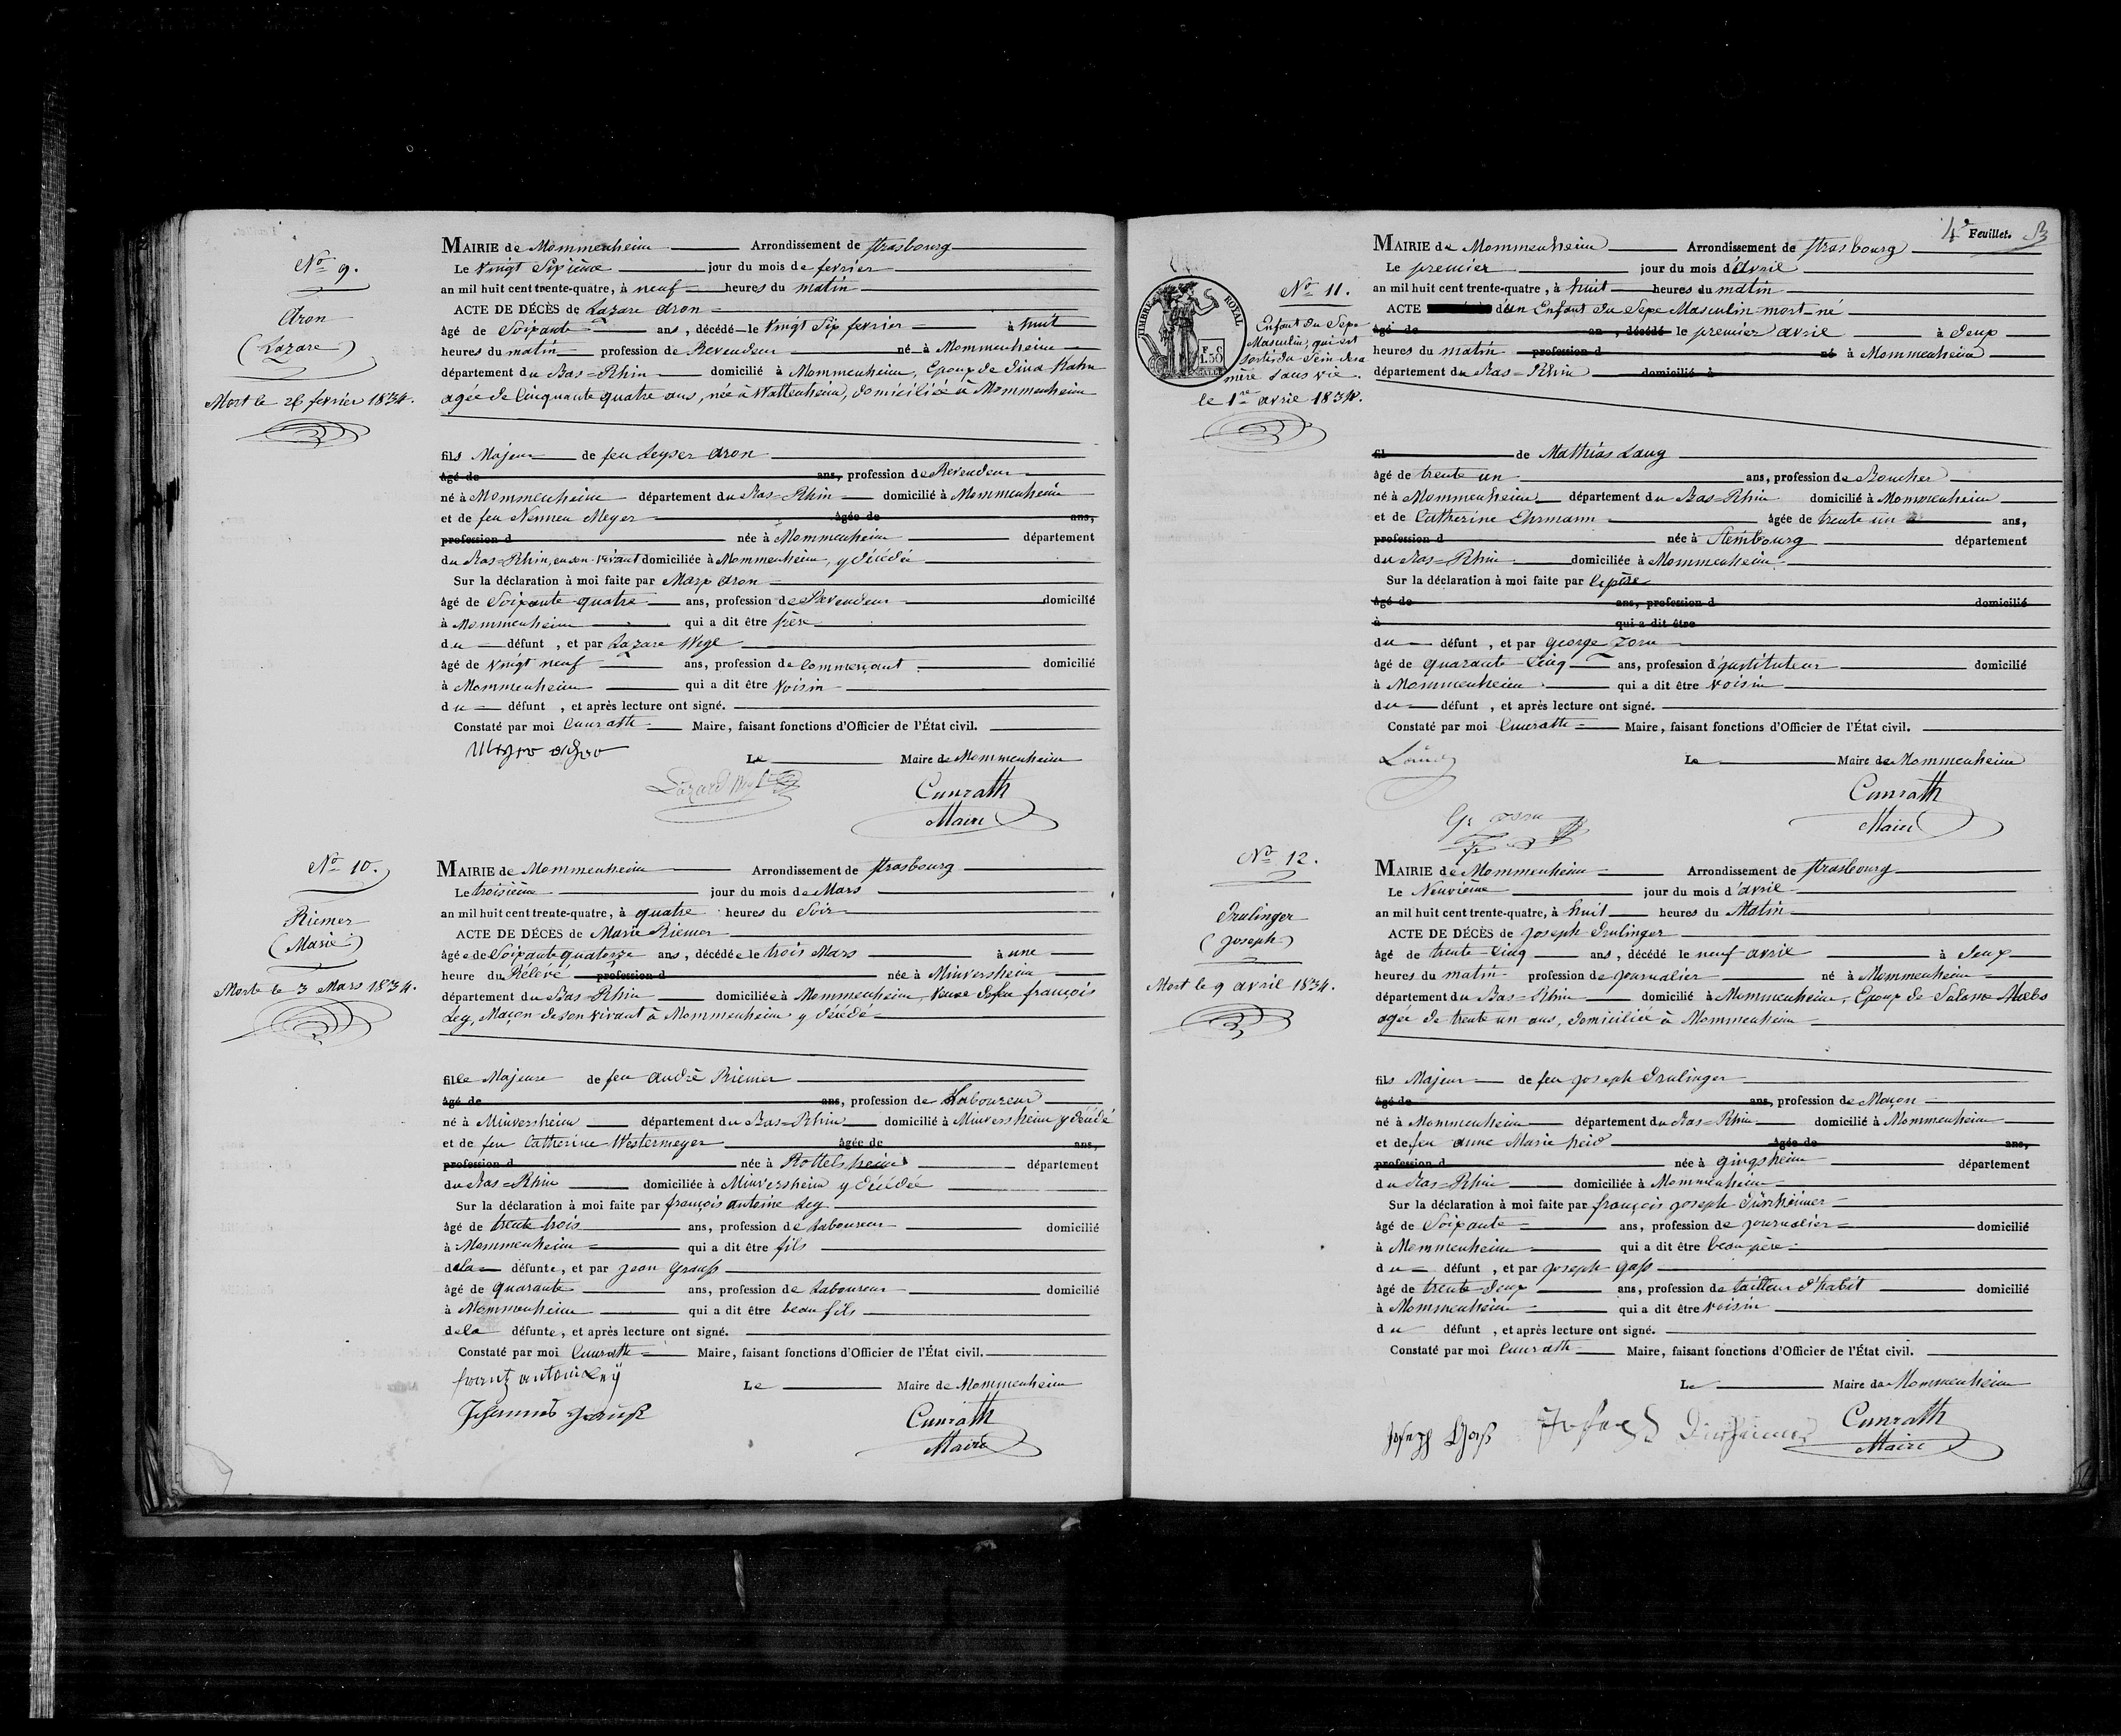 No 9.
Aron
(Lazare)
Mort le 26 fevrier 1834.
MAIRIE de Mommenheim Arrondissement de Strasbourg
Le Vingt Sixième jour du mois de fevrier
an mil huit cent trente-quatre, à neuf heures du matin
ACTE DE DÉCÈS de Lazare Aron
âgé de Soixante ans, décédé le Vingt Six fevrier à huit
heures du matin profession de Revendeur né à Mommenheim
département du Bas-Rhin domicilié à Mommenheim, Epoux de Dina Kahn
agée de Cinquante quatre ans, née à Wattenheim, domiciliée à Mommenheim
fils Majeur de feu Leyser Aron
âgé de ans, profession de Revendeur
né à Mommenheim département du Bas-Rhin domicilié à Mommenheim
et de feu Nennen Meyer âgée de ans,
profession d née à Mommenheim département
du Bas-Rhin, en son vivant domiciliée à Mommenheim, y décédée
Sur la déclaration à moi faite par Marx Aron
âgé de Soixante quatre ans, profession de Revendeur domicilié
à Mommenheim qui a dit être frère
du défunt, et par Lazare Weyl
âgé de Vingt neuf ans, profession de Commerçant domicilié
à Mommenheim qui a dit être Voisin
du défunt, et après lecture ont signé.
Constaté par moi Cunrath Maire, faisant fonctions d'Officier de l'État civil.
Le Maire de Mommenheim
Cunrath
Maire
No 10.
Riemer
(Marie)
Morte le 3 Mars 1834.
MAIRIE de Mommenheim Arrondissement de Strasbourg
Le troisième jour du mois de Mars
an mil huit cent trente-quatre, à quatre heures du Soir
ACTE DE DÉCÈS de Marie Riemer
âgée de Soixante quatorze ans, décédée le trois Mars à une
heure du Rélévé profession d née à Minversheim
département du Bas-Rhin domiciliée à Mommenheim, Veuve de feu françois
Ley, Maçon de son vivant à Mommenheim y décédé
fille Majeure de feu André Riemer
âgé de ans, profession de Laboureur
né à Minversheim département du Bas-Rhin domicilié à Minversheim y décédé
et de feu Catherine Westermeyer âgée de ans,
profession d née à Rottelsheim département
du Bas-Rhin domiciliée à Minversheim y décédée
Sur la déclaration à moi faite par françois antoine Ley
âgé de trente trois ans, profession de Laboureur domicilié
à Mommenheim qui a dit être fils
de la défunte, et par Jean Grauss
âgé de quarante ans, profession de Laboureur domicilié
à Mommenheim qui a dit être beau fils
de la défunte, et après lecture ont signé.
Constaté par moi Cunrath Maire, faisant fonctions d'Officier de l'État civil.
frantz antoni Leÿ
Johannes Grauß
Le Maire de Mommenheim
Cunrath
Maire
4e Feuillet.
TIMBRE ROYAL
No 11.
Enfant du Sexe
Masculin, qui est
sorti du Sein de sa
mère Sans vie.
le 1re avril 1834.
MAIRIE de Mommenheim Arrondissement de Strasbourg
Le premier jour du mois d'Avril
an mil huit cent trente-quatre, à huit heures du matin
ACTE d'un Enfant du Sexe Masculin mort-né
âgé de an, décédé le premier avril à deux
heures du matin profession d né à Mommenheim
département du Bas-Rhin domicilié à
fil de Mathias Laug
âgé de trente un ans, profession de Boucher
né à Mommenheim département du Bas-Rhin domicilié à Mommenheim
et de Catherine Ehrmann âgée de trente un ans,
profession d née à Steinbourg département
du Bas-Rhin domiciliée à Mommenheim
Sur la déclaration à moi faite par le père
âgé de ans, profession d domicilié
à qui a dit être
du défunt, et par George Zorn
âgé de quarante-Cinq ans, profession d'instituteur domicilié
à Mommenheim qui a dit être Voisin
du défunt, et après lecture ont signé.
Constaté par moi Cunrath Maire, faisant fonctions d'Officier de l'État civil.
Le Maire de Mommenheim
Cunrath
Maire
No 12.
Irulinger
(Joseph)
Mort le 9 avril 1834.
MAIRIE de Mommenheim Arrondissement de Strasbourg
Le Neuvième jour du mois d'avril
an mil huit cent trente-quatre, à huit heures du Matin
ACTE DE DÉCÈS de Joseph Irulinger
âgé de trente-Cinq ans, décédé le neuf avril à deux
heures du matin profession de journalier né à Mommenheim
département du Bas-Rhin domicilié à Mommenheim, Epoux de Salomé Moebs
agée de trente un ans, domiciliée à Mommenheim
fils Majeur de feu Joseph Irulinger
âgé de ans, profession de Maçon
né à Mommenheim département du Bas-Rhin domicilié à Mommenheim
et de feu anne Marie heid âgée de ans,
profession d née à gingsheim département
du Bas-Rhin domiciliée à Mommenheim
Sur la déclaration à moi faite par françois joseph Dürrheimer
âgé de Soixante ans, profession de journalier domicilié
à Mommenheim qui a dit être beau père
du défunt, et par Joseph gass
âgé de trente-deux ans, profession de tailleur d'habit domicilié
à Mommenheim qui a dit être voisin
du défunt, et après lecture ont signé.
Constaté par moi Cunrath Maire, faisant fonctions d'Officier de l'État civil.
Le Maire de Mommenheim
Joseph Gaß
Cunrath
Maire